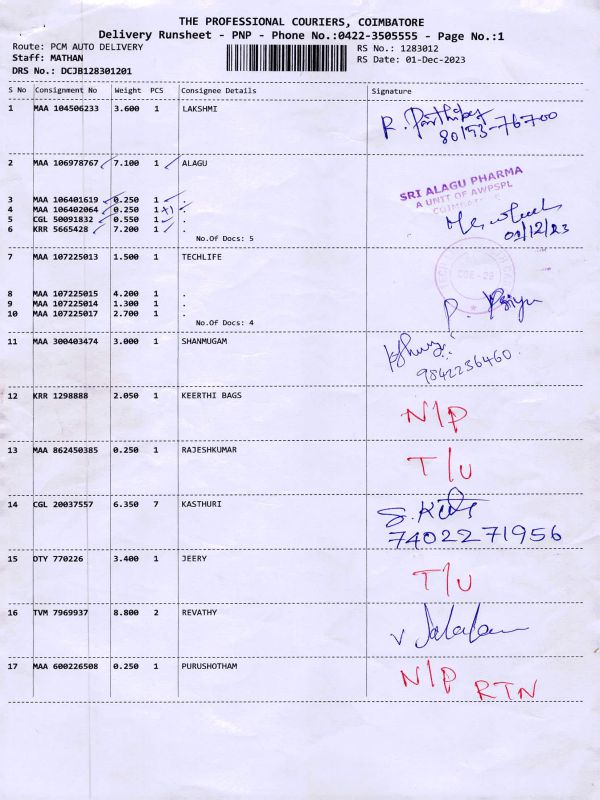 THE PROFESSIONAL COURIERS, COIMBATORE
Delivery Runsheet - PNP - Phone No.:0422-3505555 - Page No.:1
Route: PCM AUTO DELIVERY
RS No.: 1283012
Staff: MATHAN
RS Date: 01-Dec-2023
DRS No.: DCJB128301201
S No Consignment No Weight PCS Consignee Details Signature
1 MAA 104506233 3.600 1 LAKSHMI
R. Parthiban
80153-76700
2 MAA 106978767 7.100 1 ALAGU
SRI ALAGU PHARMA
A UNIT OF AWPSPL
COIMBATORE
3 MAA 106401619 0.250 1 .
4 MAA 106402064 0.250 1 .
5 CGL 50091832 0.550 1 .
6 KRR 5665428 7.200 1 .
01/12/23
No.Of Docs: 5
7 MAA 107225013 1.500 1 TECHLIFE
8 MAA 107225015 4.200 1 .
9 MAA 107225014 1.300 1 .
10 MAA 107225017 2.700 1 .
P. Priya
No.Of Docs: 4
11 MAA 300403474 3.000 1 SHANMUGAM
9842236460
12 KRR 1298888 2.050 1 KEERTHI BAGS
N/P
13 MAA 862450385 0.250 1 RAJESHKUMAR
T/U
14 CGL 20037557 6.350 7 KASTHURI
7402271956
15 DTY 770226 3.400 1 JEERY
T/U
16 TVM 7969937 8.800 2 REVATHY
17 MAA 600226508 0.250 1 PURUSHOTHAM
N/P RTN